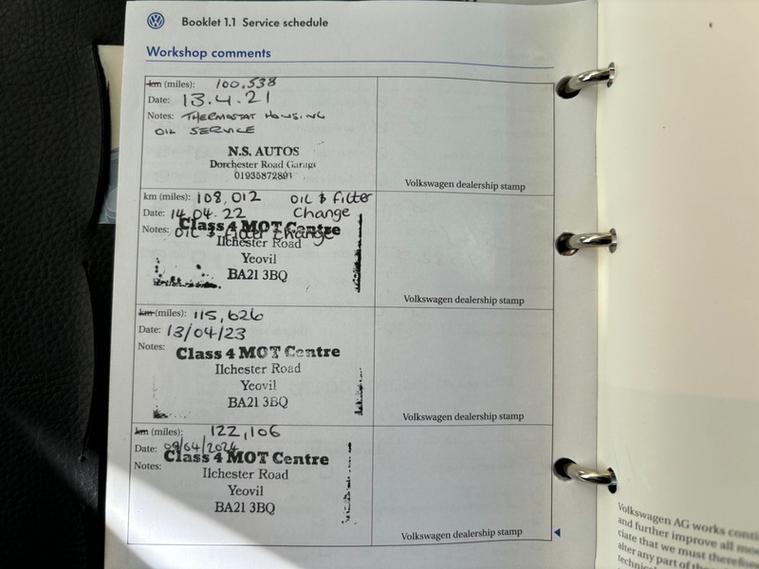 Booklet 1.1 Service schedule
Workshop comments
km (miles): 100,538
Date: 13.4.21
Notes: THERMOSTAT HOUSING
OIL SERVICE
N.S. AUTOS
Dorchester Road Garage
01935872891
Volkswagen dealership stamp
km (miles): 108,012 OIL & Filter
Date: 14.04.22 Change
Notes: OIL & Filter Change
Class 4 MOT Centre
Ilchester Road
Yeovil
BA21 3BQ
Volkswagen dealership stamp
km (miles): 115,626
Date: 13/04/23
Notes:
Class 4 MOT Centre
Ilchester Road
Yeovil
BA21 3BQ
Volkswagen dealership stamp
km (miles): 122,106
Date: 09/04/2024
Notes:
Class 4 MOT Centre
Ilchester Road
Yeovil
BA21 3BQ
Volkswagen dealership stamp
Volkswagen AG works
and further improve all
ciate that we must therefore
alter any part of the